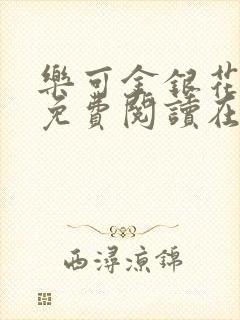 樂可金銀花
免費閱讀在
西潯涼錦